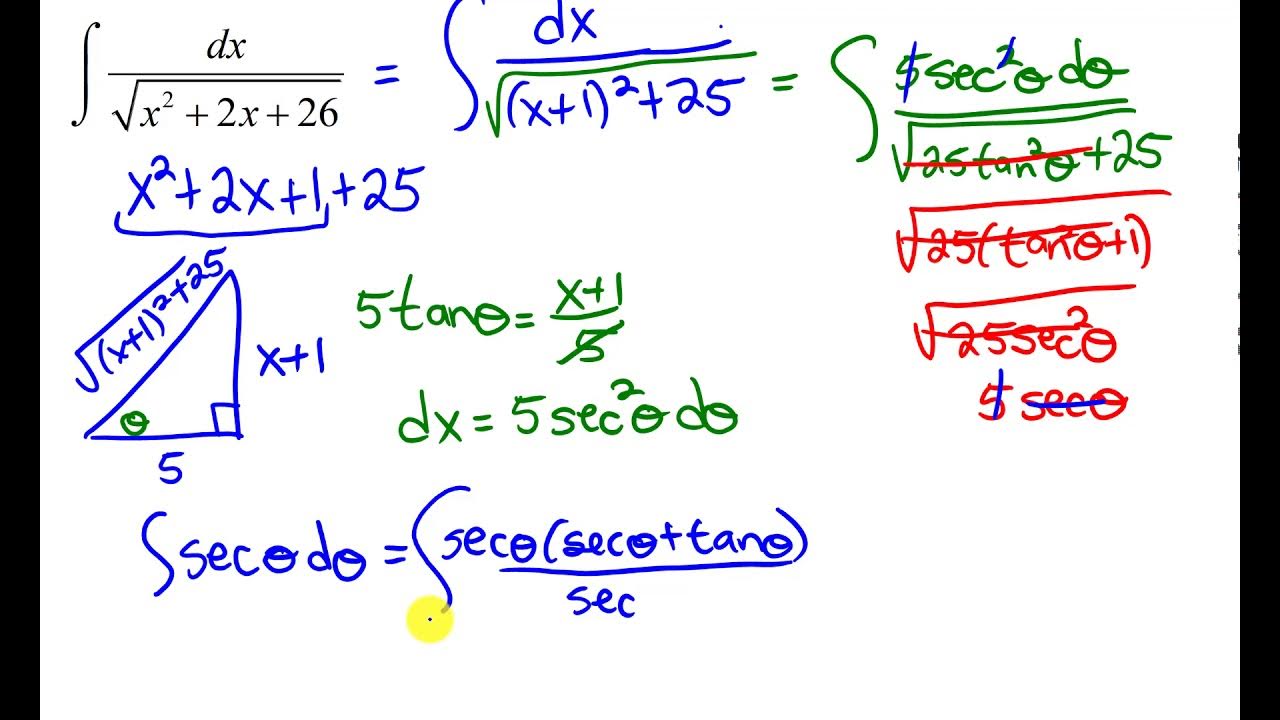 ∫ dx / √(x² + 2x + 26) = ∫ dx / √((x+1)² + 25) = ∫ 5 sec²θ dθ / √(25 tan²θ + 25)
√(25(tan²θ + 1))
√(25 sec²θ)
5 secθ
x² + 2x + 1 + 25
√((x+1)² + 25)
x+1
θ
5
5 tanθ = x+1 / 5
dx = 5 sec²θ dθ
∫ secθ dθ = ∫ secθ (secθ + tanθ) / sec